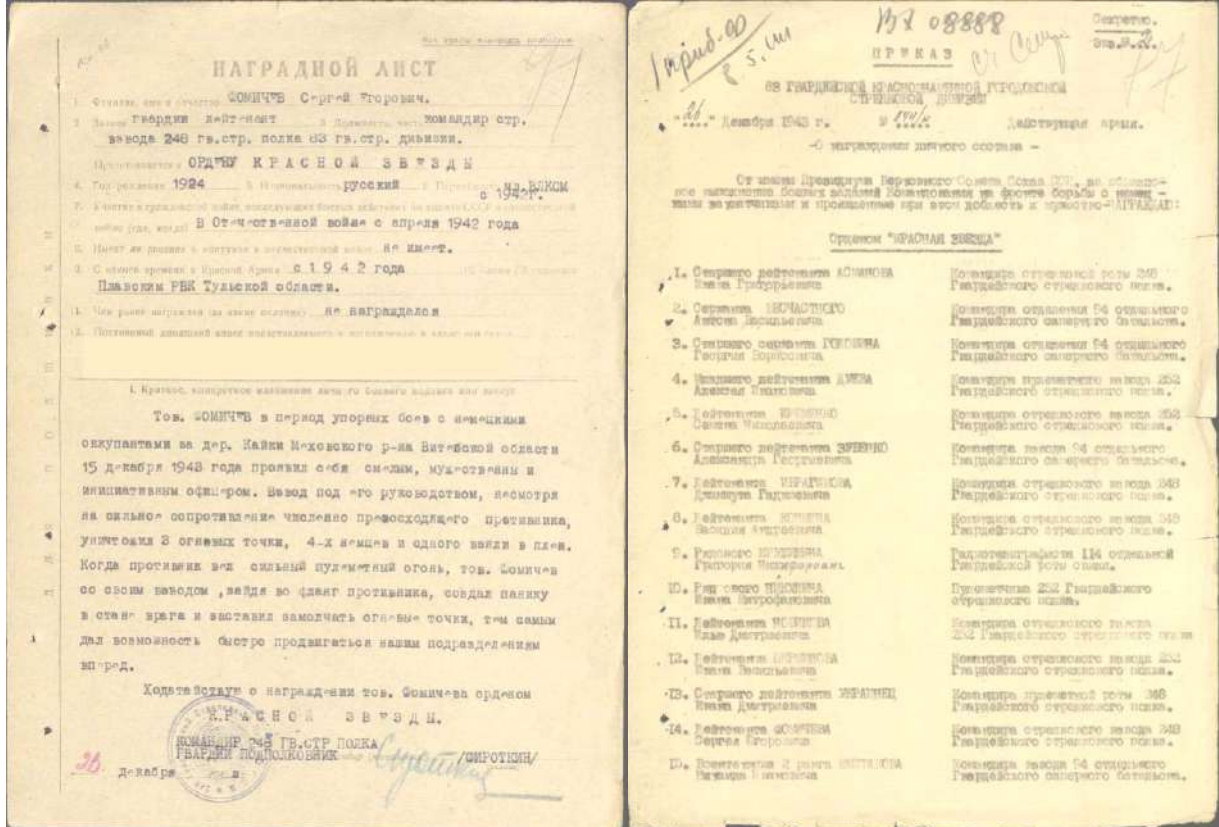 НАГРАДНОЙ ЛИСТ
1. Фамилия, имя и отчество ФОМИЧЕВ Сергей Егорович.
2. Звание гвардии лейтенант 3. Должность, часть командир стр.
взвода 248 гв.стр. полка 83 гв.стр. дивизии.
Представляется к ОРДЕНУ КРАСНОЙ ЗВЕЗДЫ
4. Год рождения 1924 5. Национальность русский 6. Партийность чл.ВЛКСМ
с 1942г.
В Отечественной войне с апреля 1942 года
не имеет.
9. С какого времени в Красной Армии с 1942 года
Плавским РВК Тульской области.
11. Чем ранее награжден (за какие отличия) не награждался
I. Краткое, конкретное изложение личного боевого подвига или заслуг
Тов. ФОМИЧЕВ в период упорных боев с немецкими
оккупантами за дер. Кайки Меховского р-на Витебской области
15 декабря 1943 года проявил себя смелым, мужественным и
инициативным офицером. Взвод под его руководством, несмотря
на сильное сопротивление численно превосходящего противника,
уничтожил 3 огневых точки, 4-х немцев и одного взяли в плен.
Когда противник вел сильный пулеметный огонь, тов. Фомичев
со своим взводом ,зайдя во фланг противника, создал панику
в стане врага и заставил замолчать огневые точки, тем самым
дал возможность быстро продвигаться нашим подразделениям
вперед.
Ходатайствую о награждении тов. Фомичева орденом
КРАСНОЙ ЗВЕЗДЫ.
КОМАНДИР 248 ГВ.СТР ПОЛКА
ГВАРДИИ ПОДПОЛКОВНИК /СИРОТКИН/
26 декабря
ВХ 08888
Секретно.
Экз.№ 2.
ПРИКАЗ
83 ГВАРДЕЙСКОЙ КРАСНОЗНАМЕННОЙ ГОРОДОКСКОЙ
СТРЕЛКОВОЙ ДИВИЗИИ
"26" Декабря 1943 г. № Действующая армия.
-О награждении личного состава -
От имени Президиума Верховного Совета Союза ССР, за образцо-
вое выполнение боевых заданий Командования на фронте борьбы с немец-
кими захватчиками и проявленные при этом доблесть и мужество-НАГРАЖДАЮ:
Орденом "КРАСНАЯ ЗВЕЗДА"
1. Старшего лейтенанта АСМАНОВА Командира стрелковой роты 248
Ивана Григорьевича Гвардейского стрелкового полка.
2. Сержанта БЕСЧАСТНОГО Командира отделения 94 отдельного
Антона Васильевича Гвардейского саперного батальона.
3. Старшего сержанта Командира отделения 94 отдельного
Георгия Борисовича Гвардейского саперного батальона.
4. Младшего лейтенанта Командира пулеметного взвода 252
Алексея Ивановича Гвардейского стрелкового полка.
5. Лейтенанта Командира стрелкового взвода 252
Семена Николаевича Гвардейского стрелкового полка.
6. Старшего лейтенанта Командира взвода 94 отдельного
Александра Георгиевича Гвардейского саперного батальона.
7. Лейтенанта ИБРАГИМОВА Командира стрелкового взвода 248
Гвардейского стрелкового полка.
8. Лейтенанта Командира стрелкового взвода 248
Василия Андреевича Гвардейского стрелкового полка.
9. Рядового Радиотелеграфиста 114 отдельной
Григория Гвардейской роты связи.
10. Рядового Пулеметчика 252 Гвардейского
Ивана Митрофановича стрелкового полка.
11. Лейтенанта НОВИКОВА Командира стрелкового взвода
Илью Дмитриевича 252 Гвардейского стрелкового полка
12. Лейтенанта Командира стрелкового взвода 252
Ивана Васильевича Гвардейского стрелкового полка.
13. Старшего лейтенанта УКРАИНЕЦ Командира пулеметной роты 248
Ивана Дмитриевича Гвардейского стрелкового полка.
14. Лейтенанта ФОМИЧЕВА Командира стрелкового взвода 248
Сергея Егоровича Гвардейского стрелкового полка.
15. Воентехника 2 ранга Командира взвода 94 отдельного
Гвардейского саперного батальона.